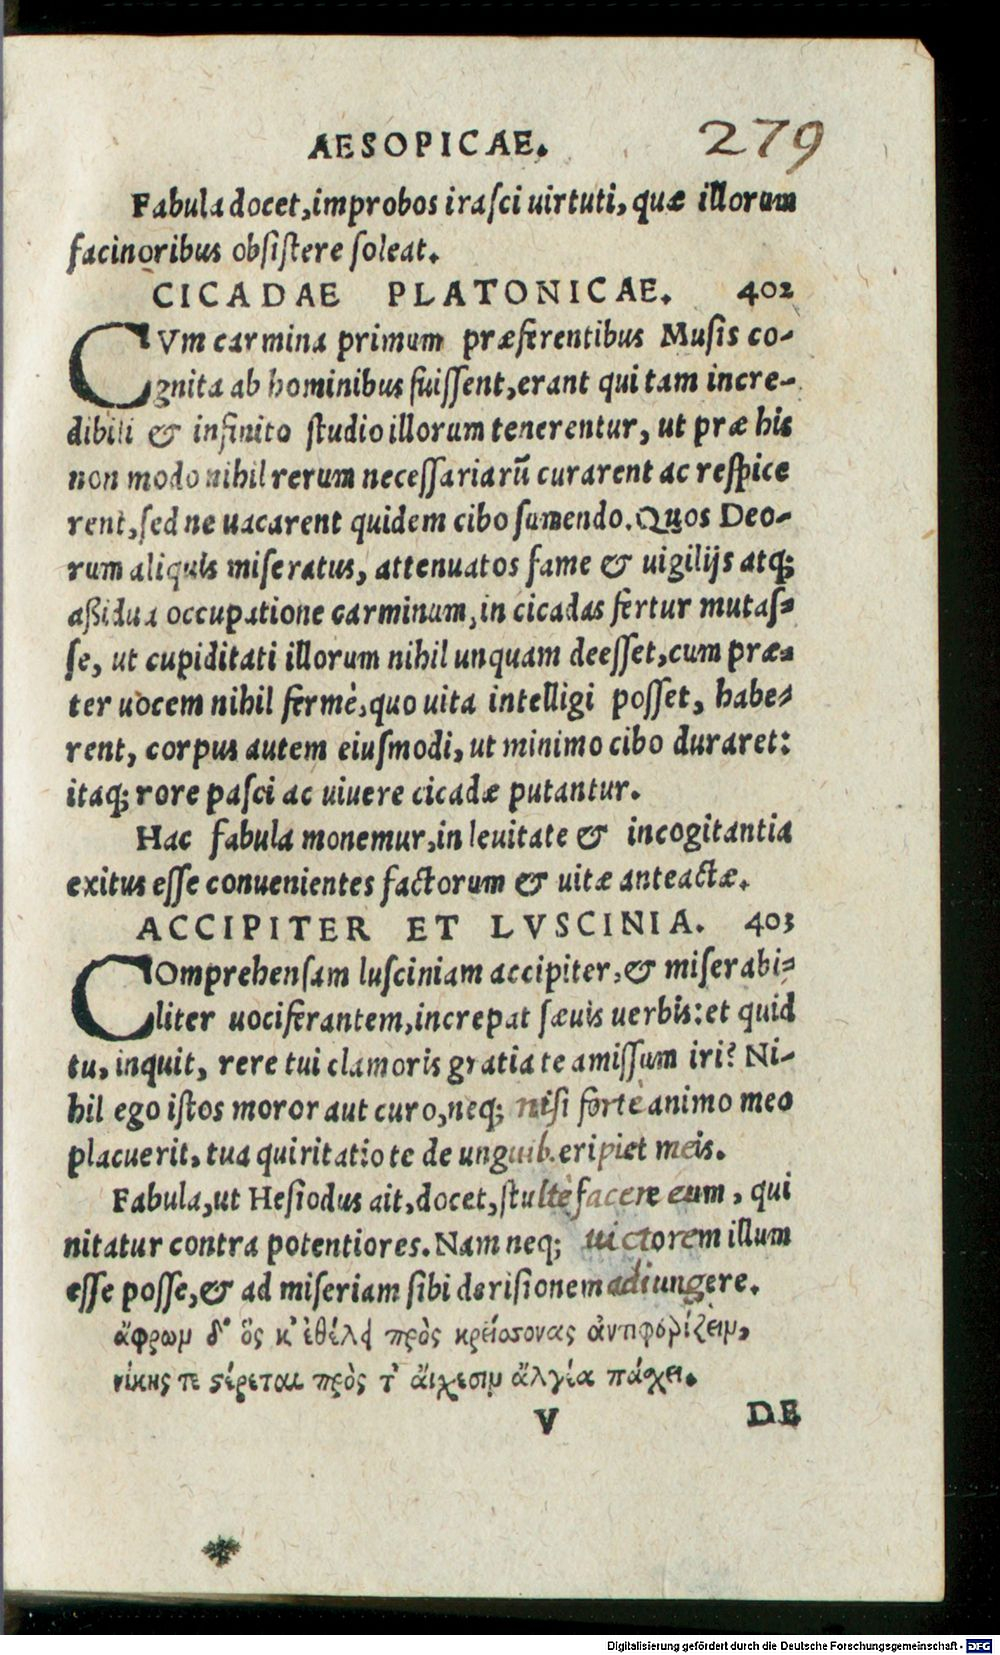 AESOPICAE. 279
Fabula docet, improbos irasci uirtuti, quæ illorum
facinoribus obsistere soleat.
CICADAE PLATONICAE. 402
CVm carmina primum præferentibus Musis co-
gnita ab hominibus fuissent, erant qui tam incre-
dibili & infinito studio illorum tenerentur, ut præ his
non modo nihil rerum necessariarũ curarent ac respice
rent, sed ne uacarent quidem cibo sumendo. Quos Deo-
rum aliquis miseratus, attenuatos fame & uigilijs atq;
aßidua occupatione carminum, in cicadas fertur mutas-
se, ut cupiditati illorum nihil unquam deesset, cum præ-
ter uocem nihil fermè, quo uita intelligi posset, habe-
rent, corpus autem eiusmodi, ut minimo cibo duraret:
itaq; rore pasci ac uiuere cicadæ putantur.
Hac fabula monemur, in leuitate & incogitantia
exitus esse conuenientes factorum & uitæ anteactæ.
ACCIPITER ET LVSCINIA. 403
COmprehensam lusciniam accipiter, & miserabi-
liter uociferantem, increpat sæuis uerbis: et quid
tu, inquit, rere tui clamoris gratia te amissum iri? Ni-
hil ego istos moror aut curo, neq; nisi fortè animo meo
placuerit, tua quiritatio te de unguib. eripiet meis.
Fabula, ut Hesiodus ait, docet, stultè facere eum, qui
nitatur contra potentiores. Nam neq; uictorem illum
esse posse, & ad miseriam sibi derisionem adiungere.
ἄφρων δ' ὃς κ' ἐθέλῃ πρὸς κρείσσονας ἀντιφερίζειν,
νίκης τε στέρεται πρὸς τ' αἴχεσιν ἄλγεα πάχει.
V DE
Digitalisierung gefördert durch die Deutsche Forschungsgemeinschaft - DFG